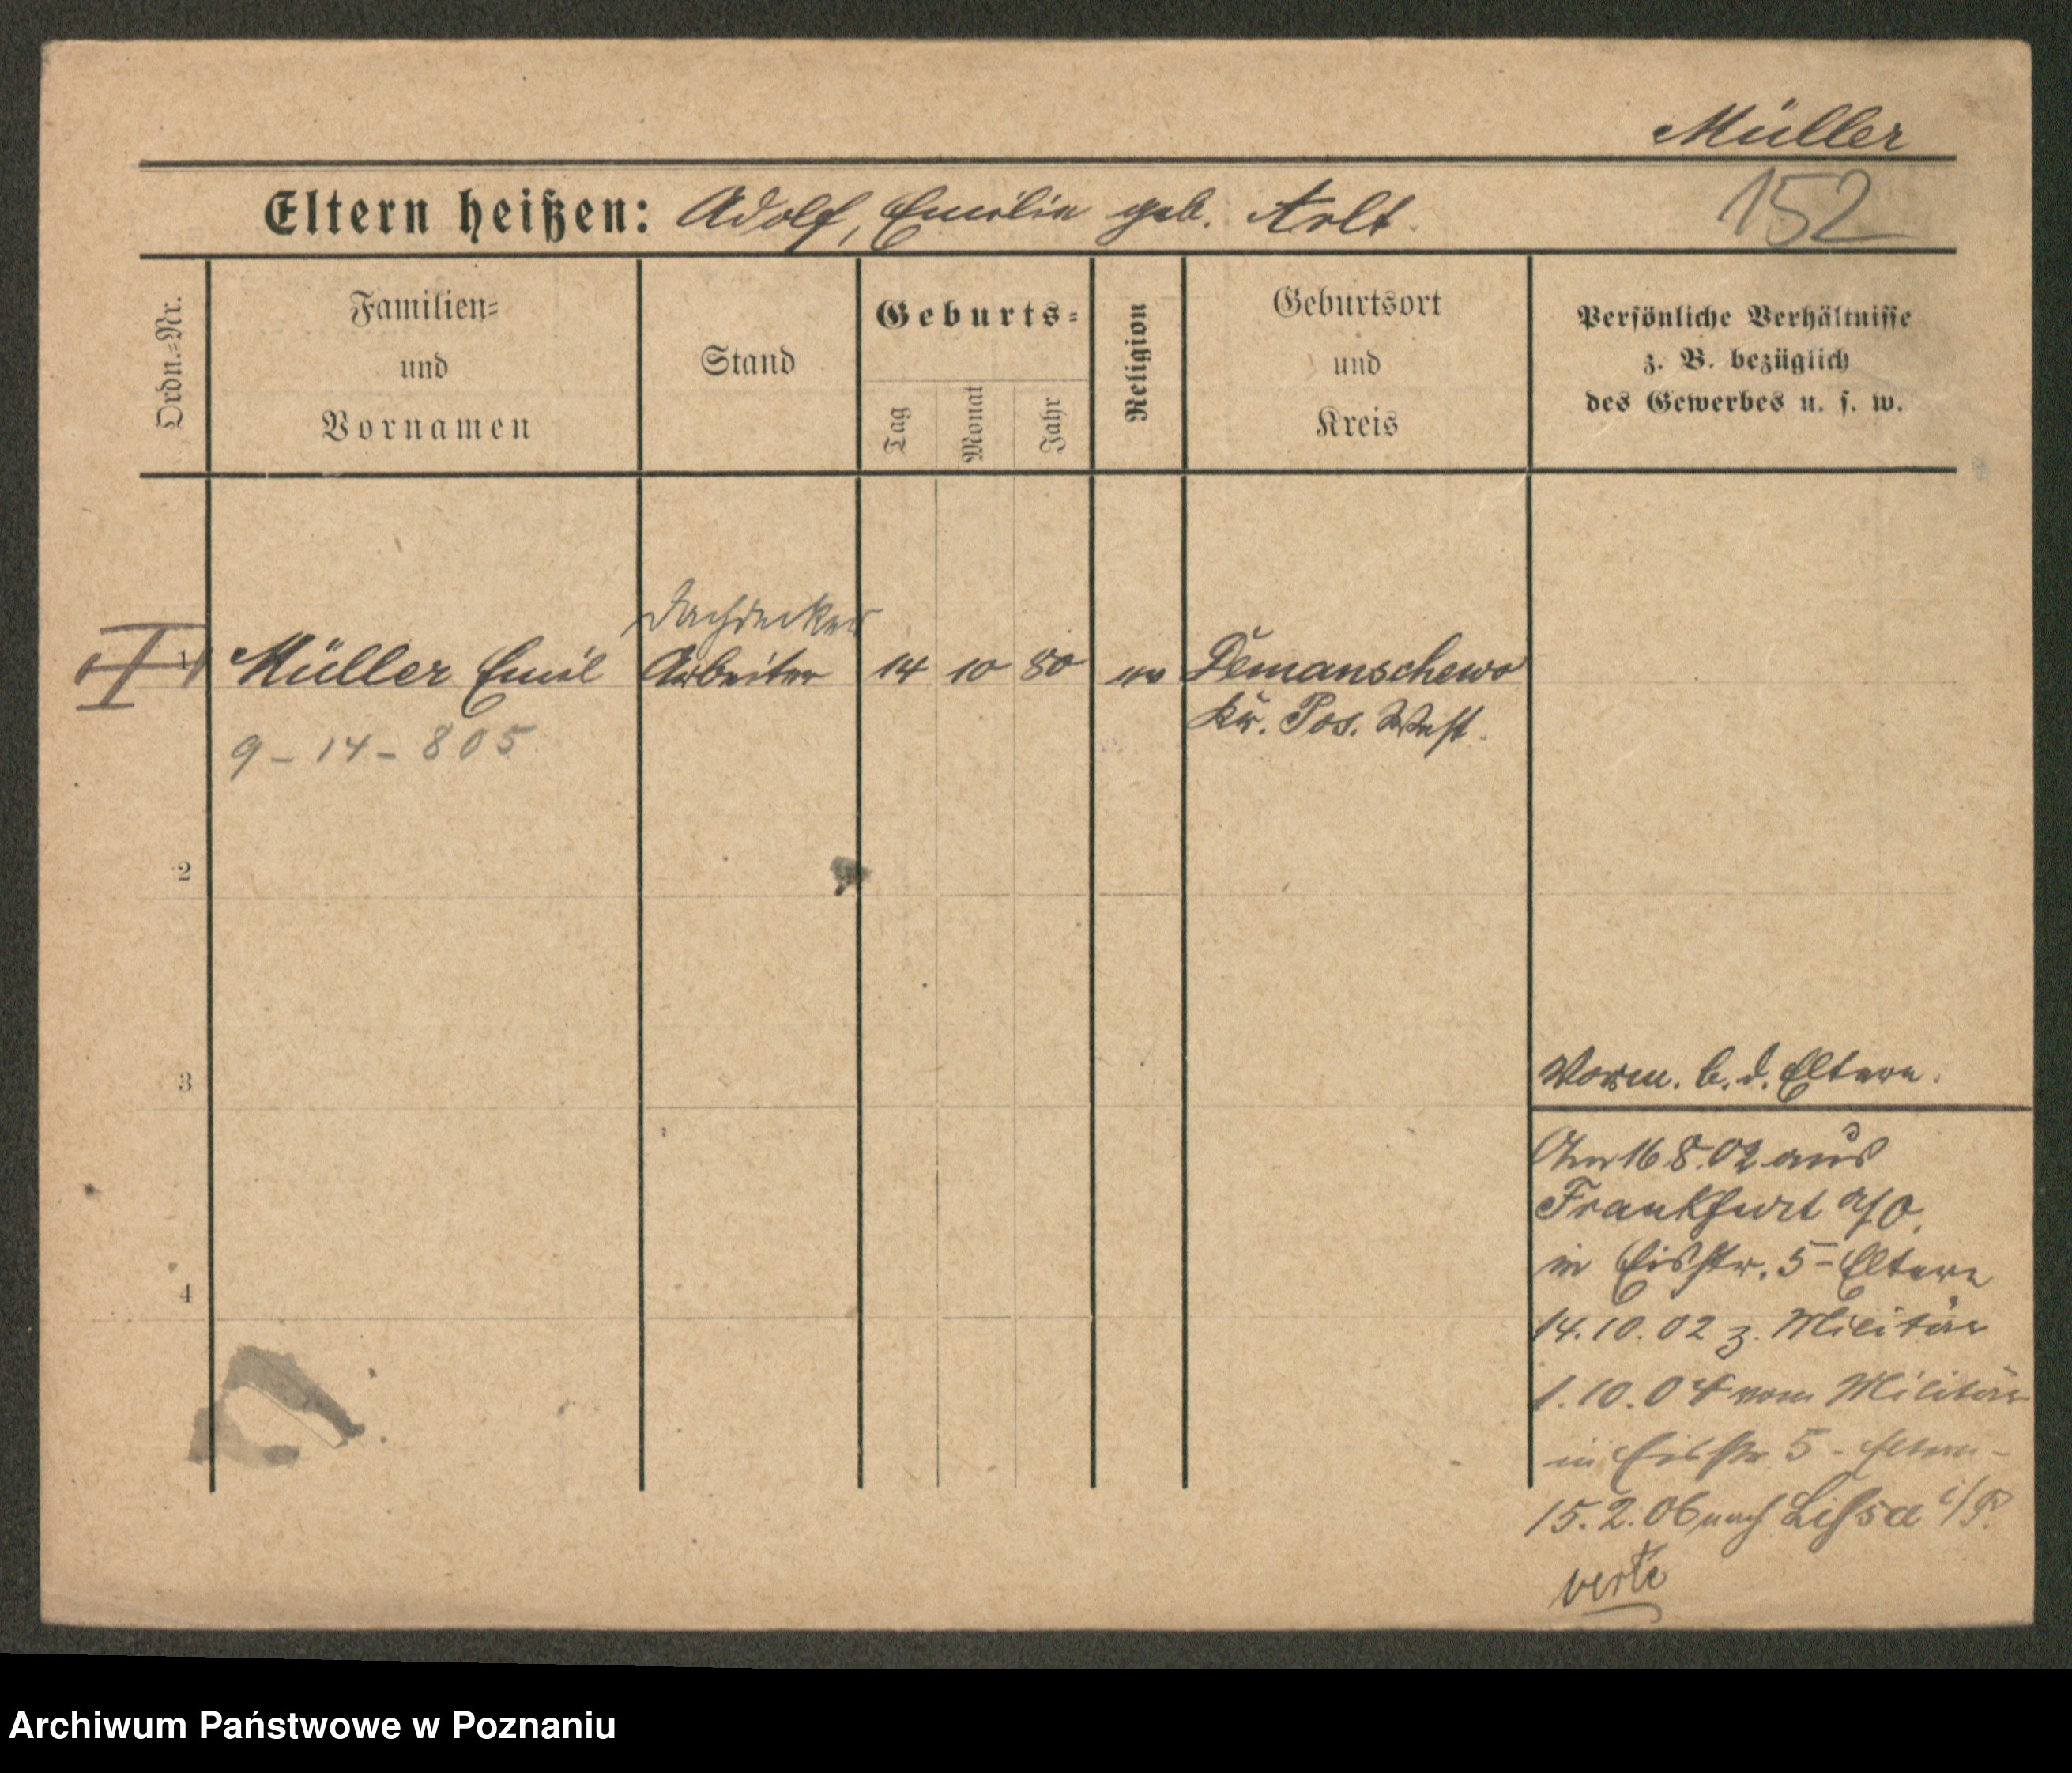 Müller
Eltern heißen: Adolf, Emilie geb. Arlt.
152
Ordn.-Nr.
Familien-
und
Vornamen
Stand
Geburts-
Tag
Monat
Jahr
Religion
Geburtsort
und
Kreis
Persönliche Verhältnisse
z. B. bezüglich
des Gewerbes u. s. w.
Dachdecker
1 Müller Emil Arbeiter 14 10 80 ev Demanschewo
Kr. Pos. West.
9-14-805
2
3
Vorm. b. d. Eltern.
Am 16.8.02 aus
Frankfurt a/O.
in Eisstr. 5 - Eltern
4
14.10.02 z. Militär
1.10.04 vom Militär
in Eisstr 5 - Eltern -
15.2.06 nach Lissa i/P.
verte
Archiwum Państwowe w Poznaniu